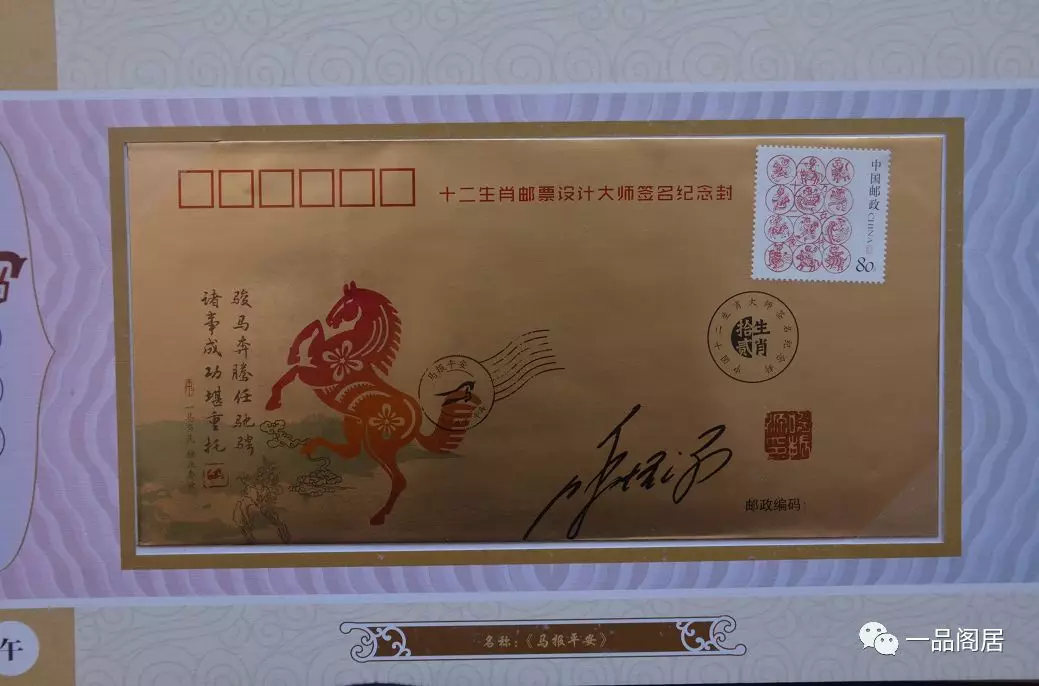 十二生肖邮票设计大师签名纪念封
中国邮政
CHINA
80
骏马奔腾任驰骋
诸事成功堪重托
马报平安
生肖
拾贰
邮政编码:
午
名称:《马报平安》
一品阁居